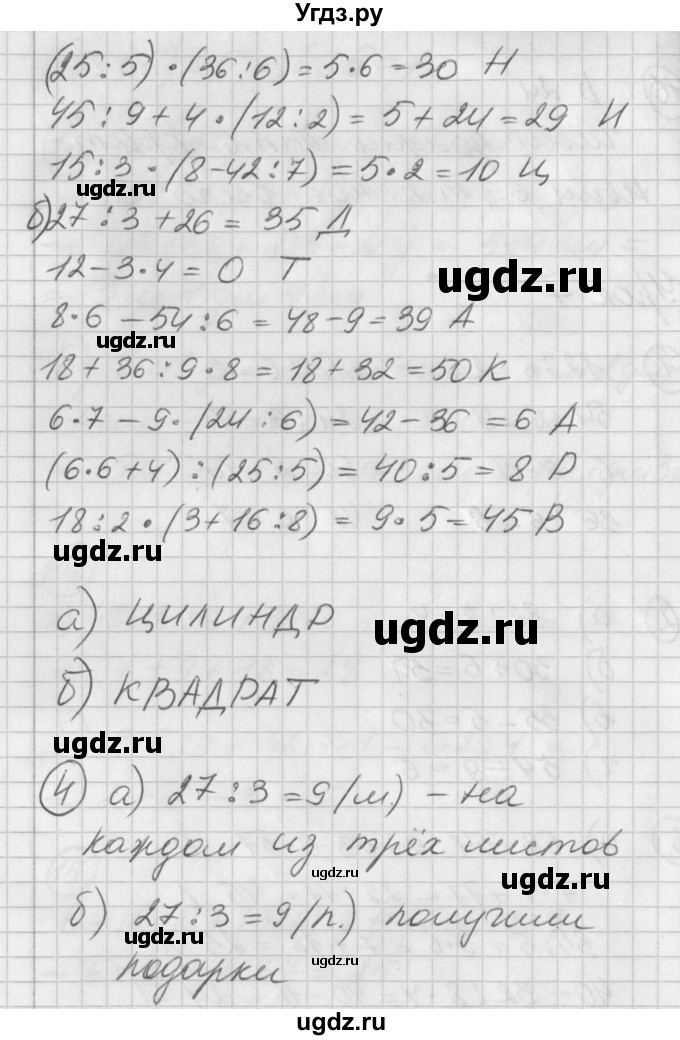 Угдз.ру
(25:5)•(36:6)=5•6=30 Н
45:9+4•(12:2)=5+24=29 И
15:3•(8-42:7)=5•2=10 Ц
ugdz.ru
б)27:3+26=35 Д
12-3•4=0 Т
ugdz.ru
8•6-54:6=48-9=39 А
ugdz.ru
18+36:9•8=18+32=50 К
6•7-9•(24:6)=42-36=6 А
(6•6+4):(25:5)=40:5=8 Р
18:2•(3+16:8)=9•5=45 В
ugdz.ru
а) ЦИЛИНДР
ugdz.ru
б) КВАДРАТ
ugdz.ru
4 а) 27:3=9(м.) - на
каждом из трёх листов
ugdz.ru
ugdz.ru
б) 27:3=9(п.) получили
ugdz.ru
подарки
ugdz.ru
ugdz.ru